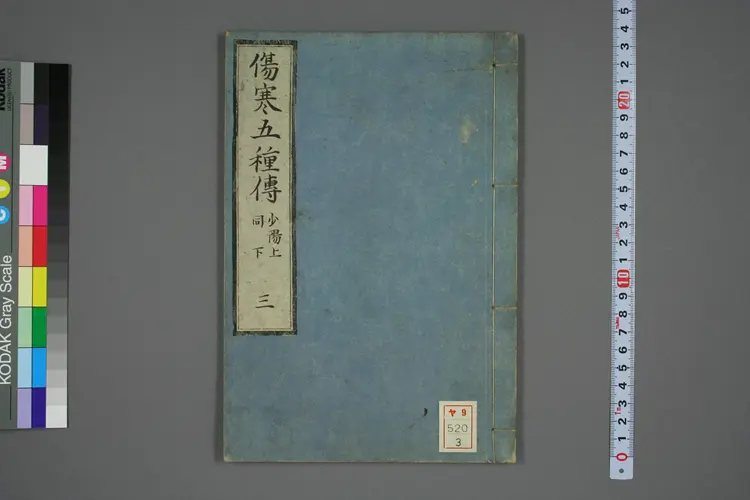 傷寒五種傳
少陽上
同 下
三
ヤ9
520
3
KODAK Gray Scale
Kodak
C Y M
0 1 2 3 4 5 6 7 8 9 10 1 2 3 4 5 6 7 8 9 20 1 2 3 4 5